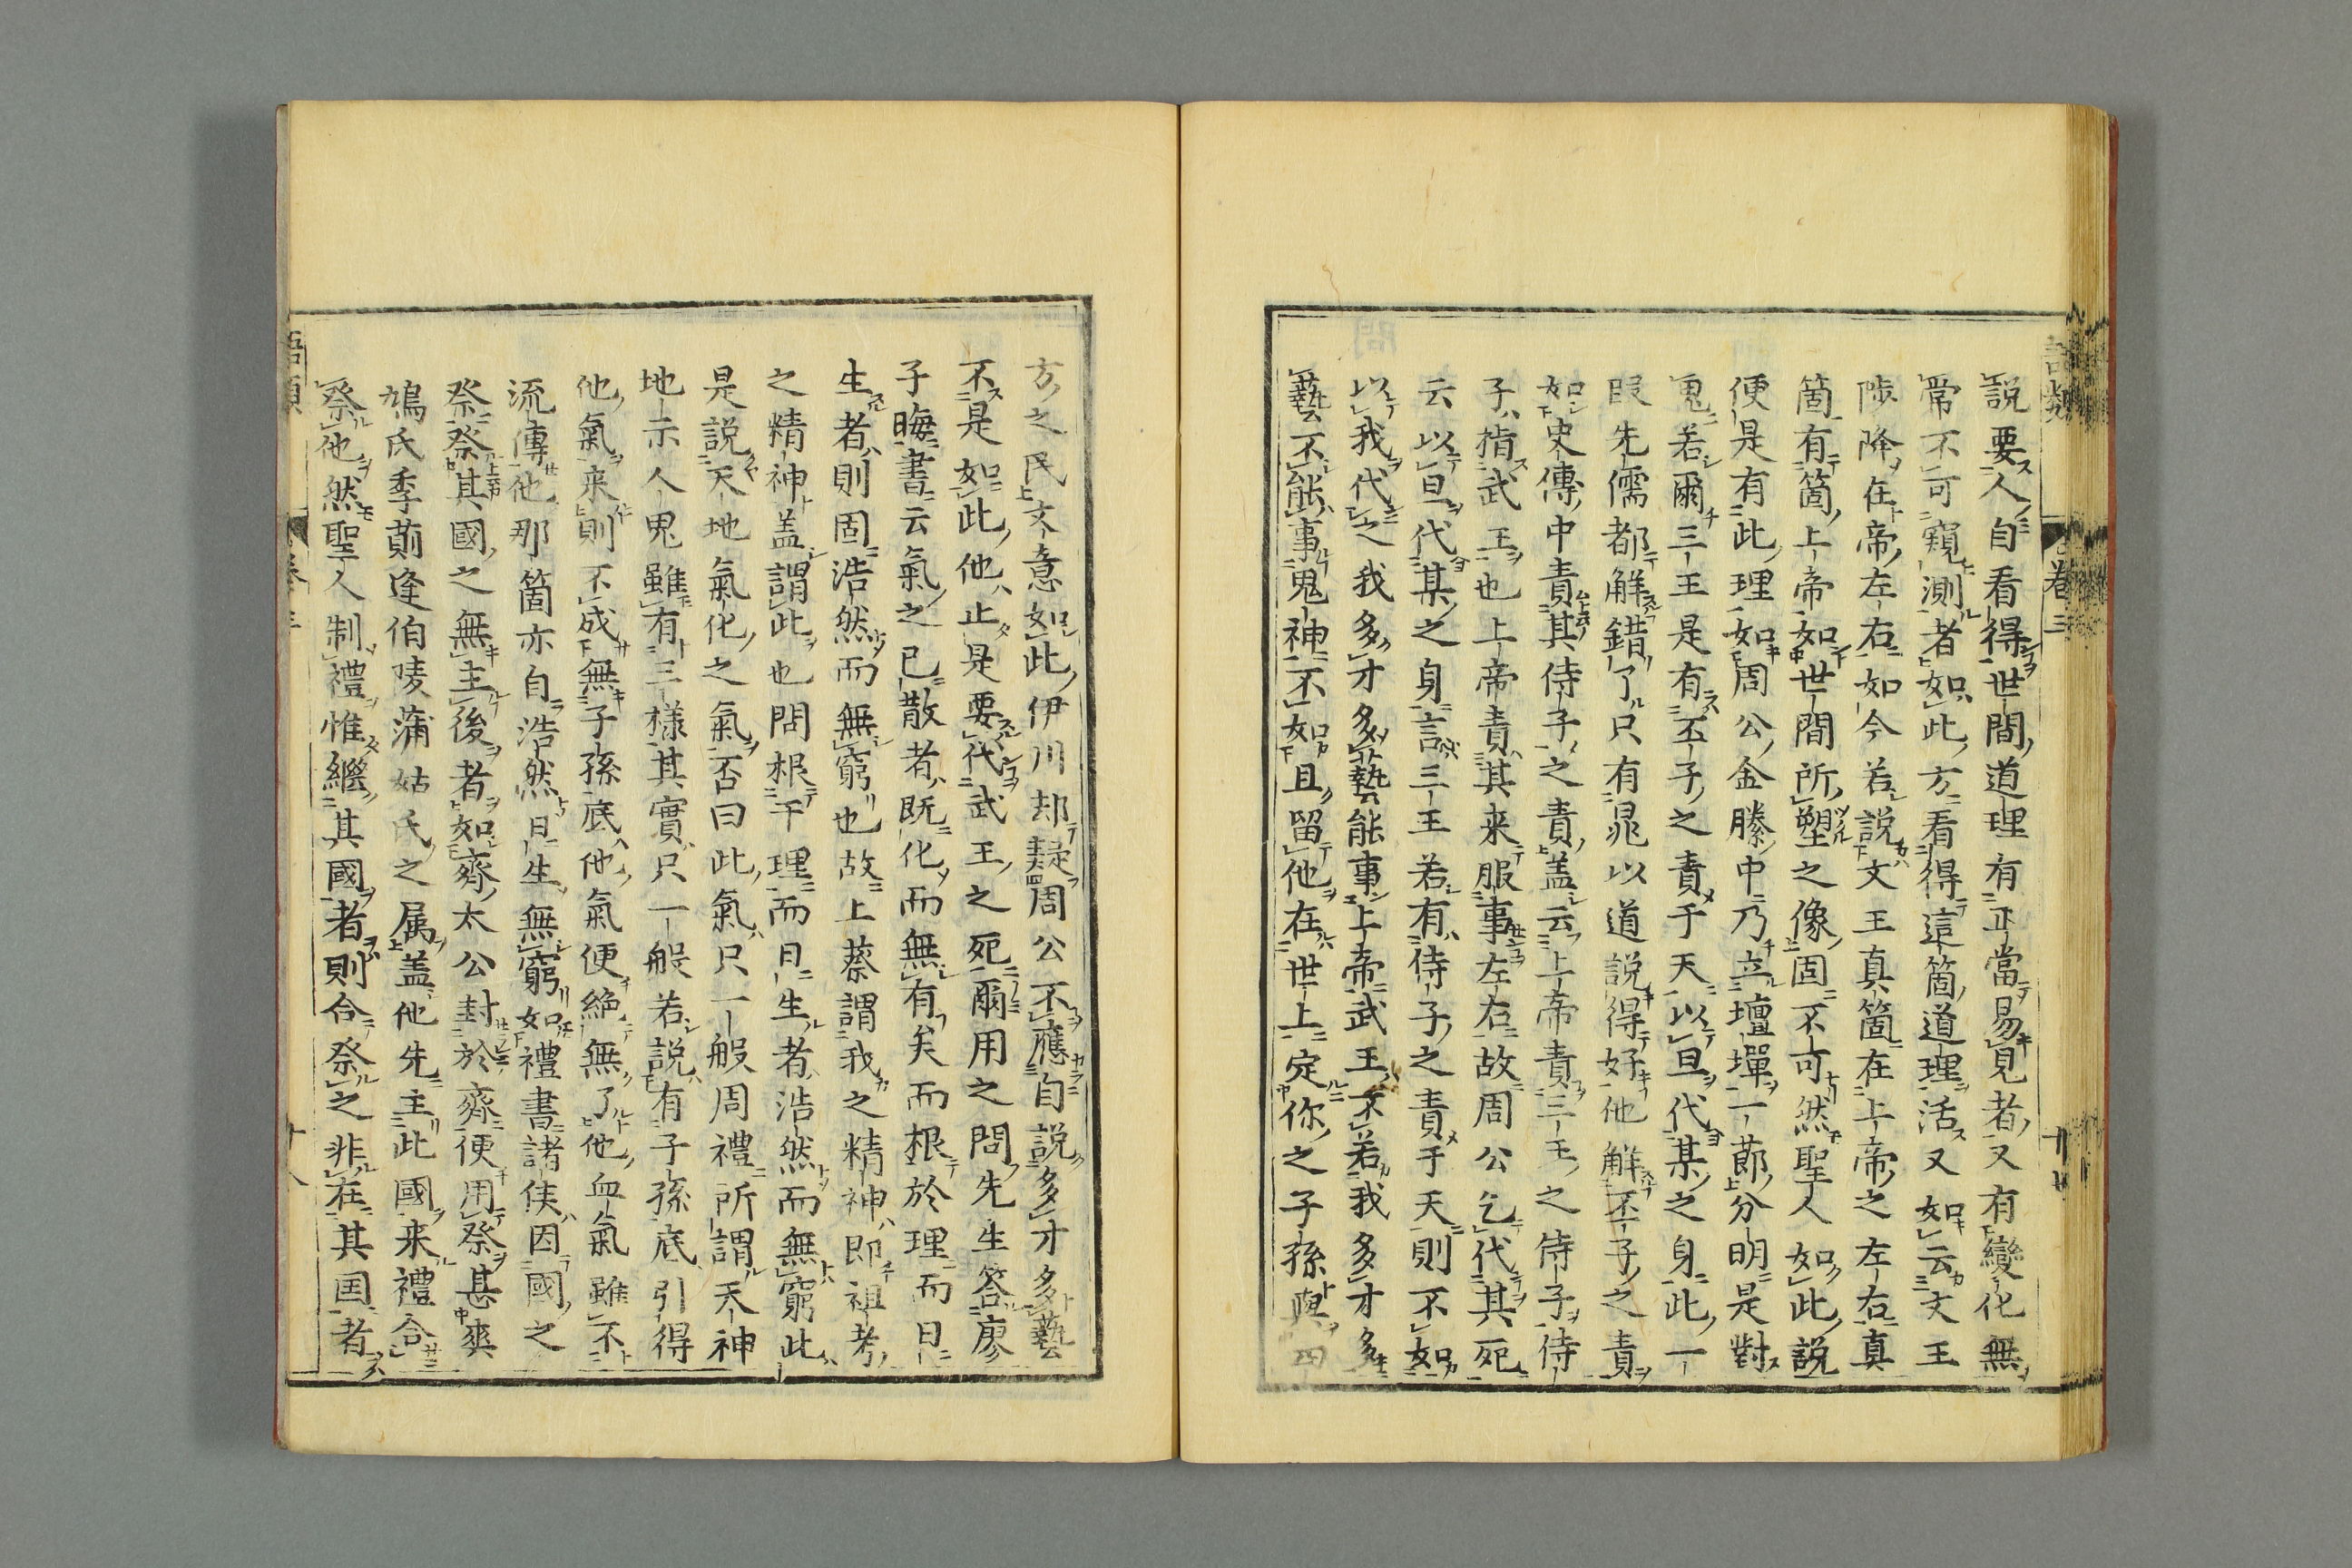 説要人自看得世間道理有正當易見者又有變化無
常不可窺測者如此方看得這箇道理活又如云文王
陟降在帝左右如今若説文王真箇在上帝之左右真
箇有箇上帝如世間所塑之像固不可然聖人如此説
便是有此理如周公金縢中乃立壇墠一莭分明是對
鬼若爾三王是有丕子之責于天以旦代某之身此一
段先儒都觧錯了只有晁以道説得好他觧丕子之責
如史傳中責其侍子之責盖云上帝責三王之侍子侍
子指武王也上帝責其来服事左右故周公乞代其死
云以旦代某之身言三王若有侍子之責于天則不如
以我代之我多才多藝能事上帝武王不若我多才多
藝不能事鬼神不如且留他在世上定你之子孫與四
方之民文意如此伊川却疑周公不應自説多才多藝
不是如此他止是要代武王之死爾用之問先生答廖
子晦書云氣之已散者既化而無有矣而根於理而日
生者則固浩然而無窮也故上蔡謂我之精神即祖考
之精神盖謂此也問根于理而日生者浩然而無窮此
是説天地氣化之氣否曰此氣只一般周禮所謂天神
地示人鬼雖有三様其實只一般若説有子孫底引得
他氣来則不成無子孫底他氣便絶無了他血氣雖不
流傳他那箇亦自浩然日生無窮如禮書諸侯因國之
祭祭其國之無主後者如齊太公封於齊便用祭甚爽
鳩氏季萴逢伯陵蒲姑氏之属盖他先主此國来禮合
祭他然聖人制禮惟繼其國者則合祭之非在其国者
語類 卷三
語類 卷三 十八